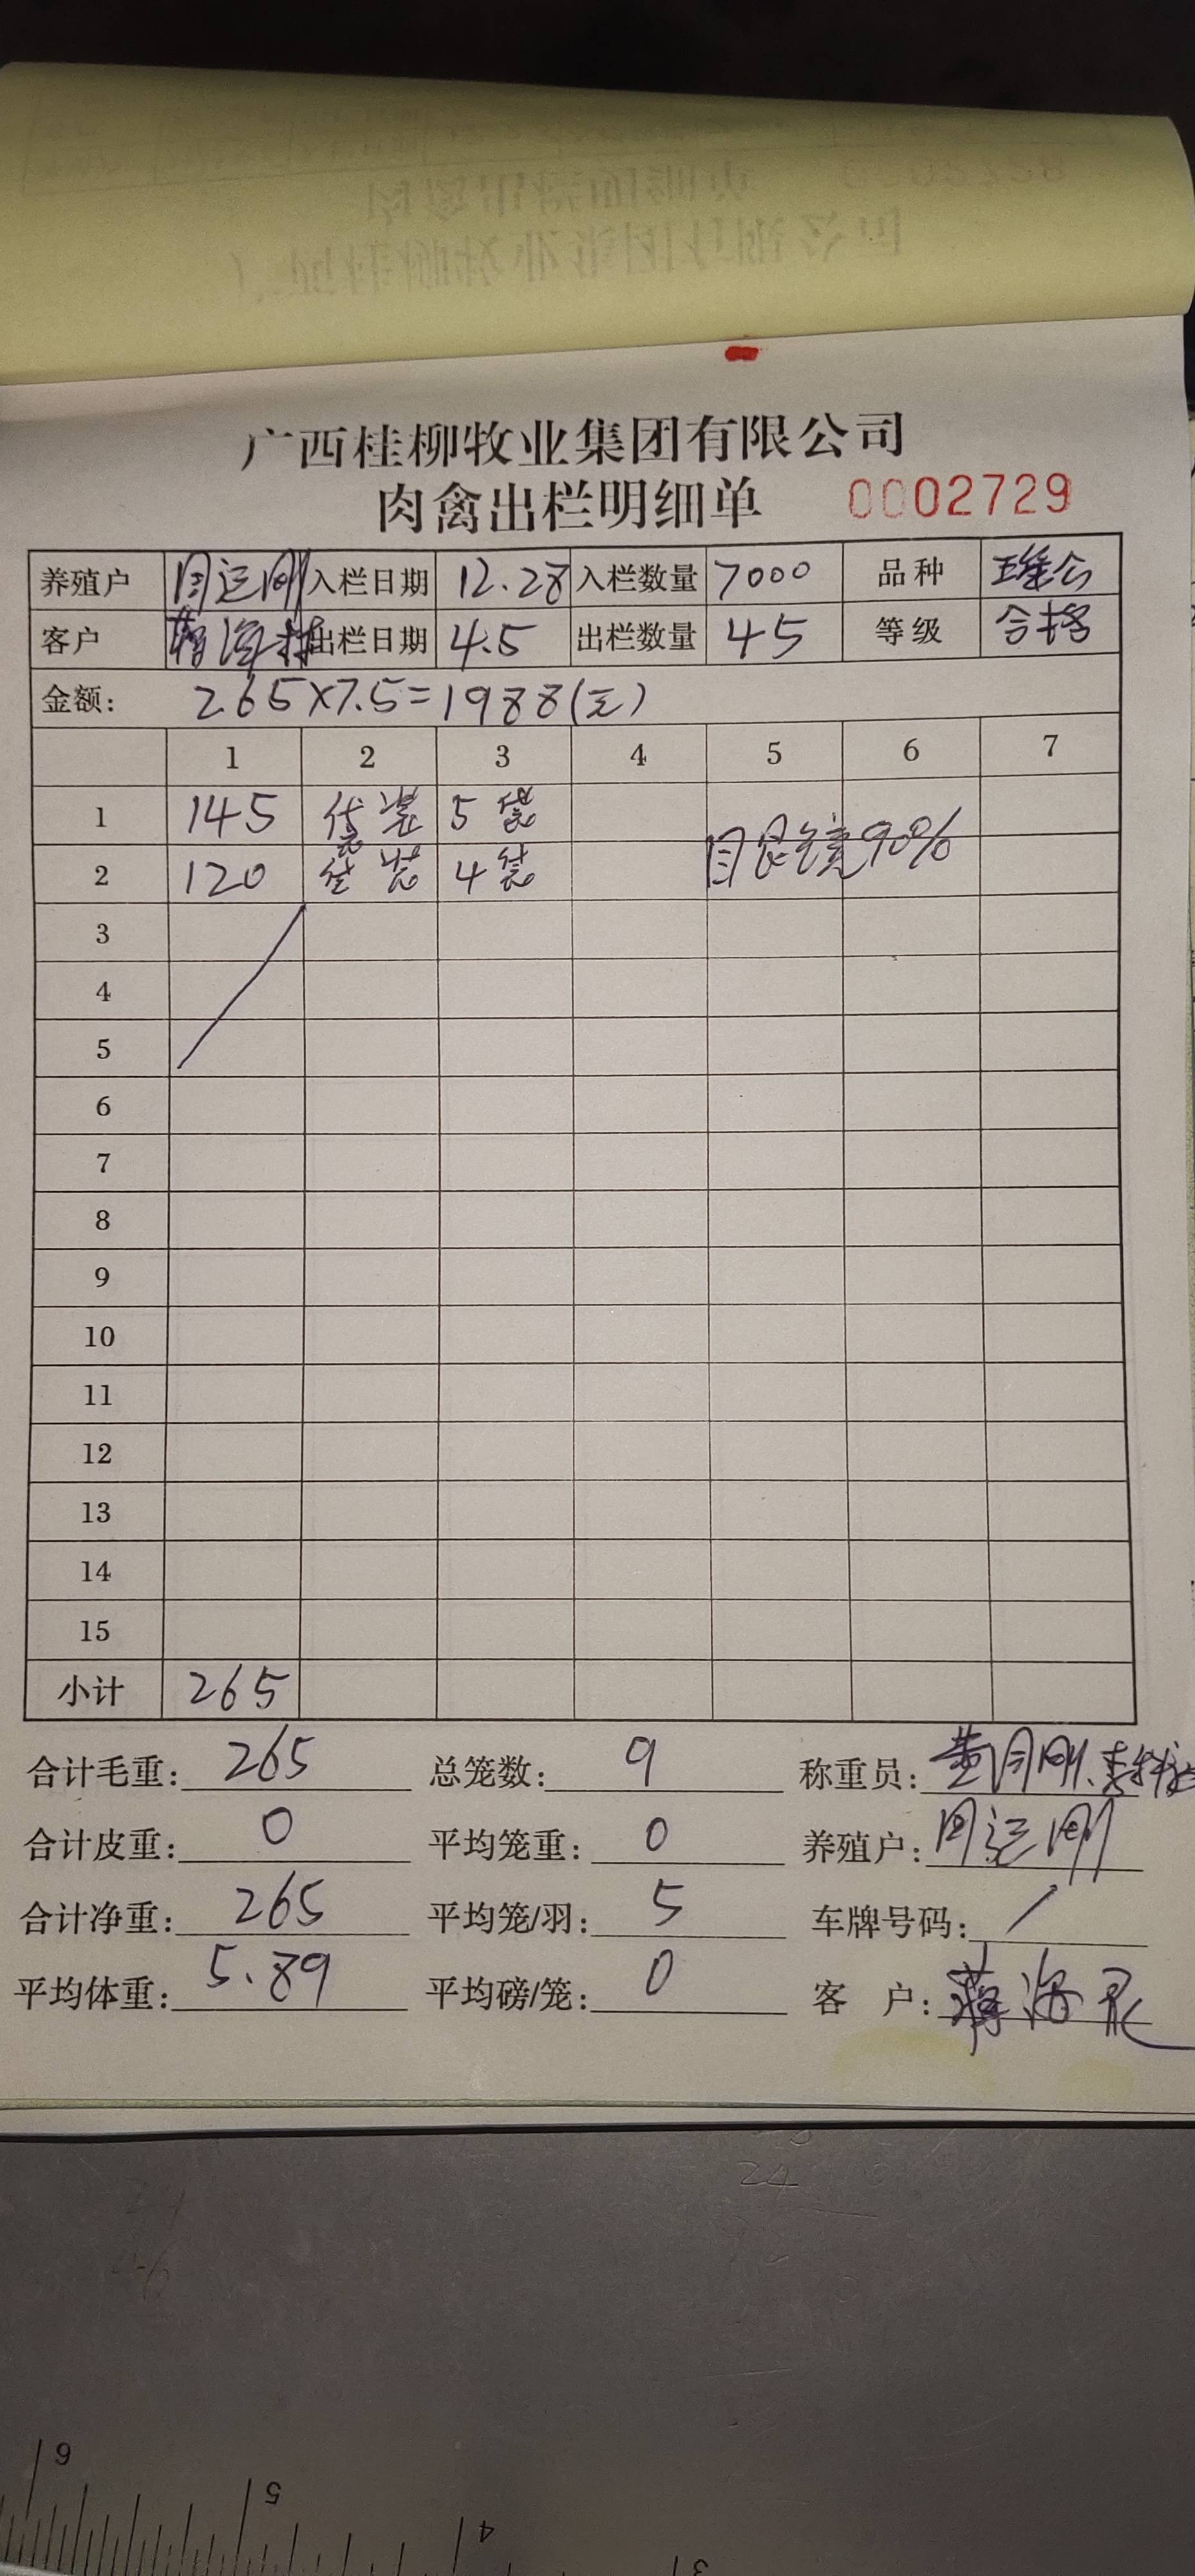 广西桂柳牧业集团有限公司
肉禽出栏明细单 0002729
养殖户 周运刚 入栏日期 12.28 入栏数量 7000 品种 瑶公
客户 出栏日期 4.5 出栏数量 45 等级 合格
金额: 265×7.5=1988(元)
1 2 3 4 5 6 7
1 145 袋装 5袋
目良镜90%
2 120 袋装 4袋
3
4
5
6
7
8
9
10
11
12
13
14
15
小计 265
合计毛重: 265 总笼数: 9 称重员: 黄周刚、
合计皮重: 0 平均笼重: 0 养殖户: 周运刚
合计净重: 265 平均笼/羽: 5 车牌号码: /
平均体重: 5.89 平均磅/笼: 0 客 户: 蒋海
24
6
5
4
3